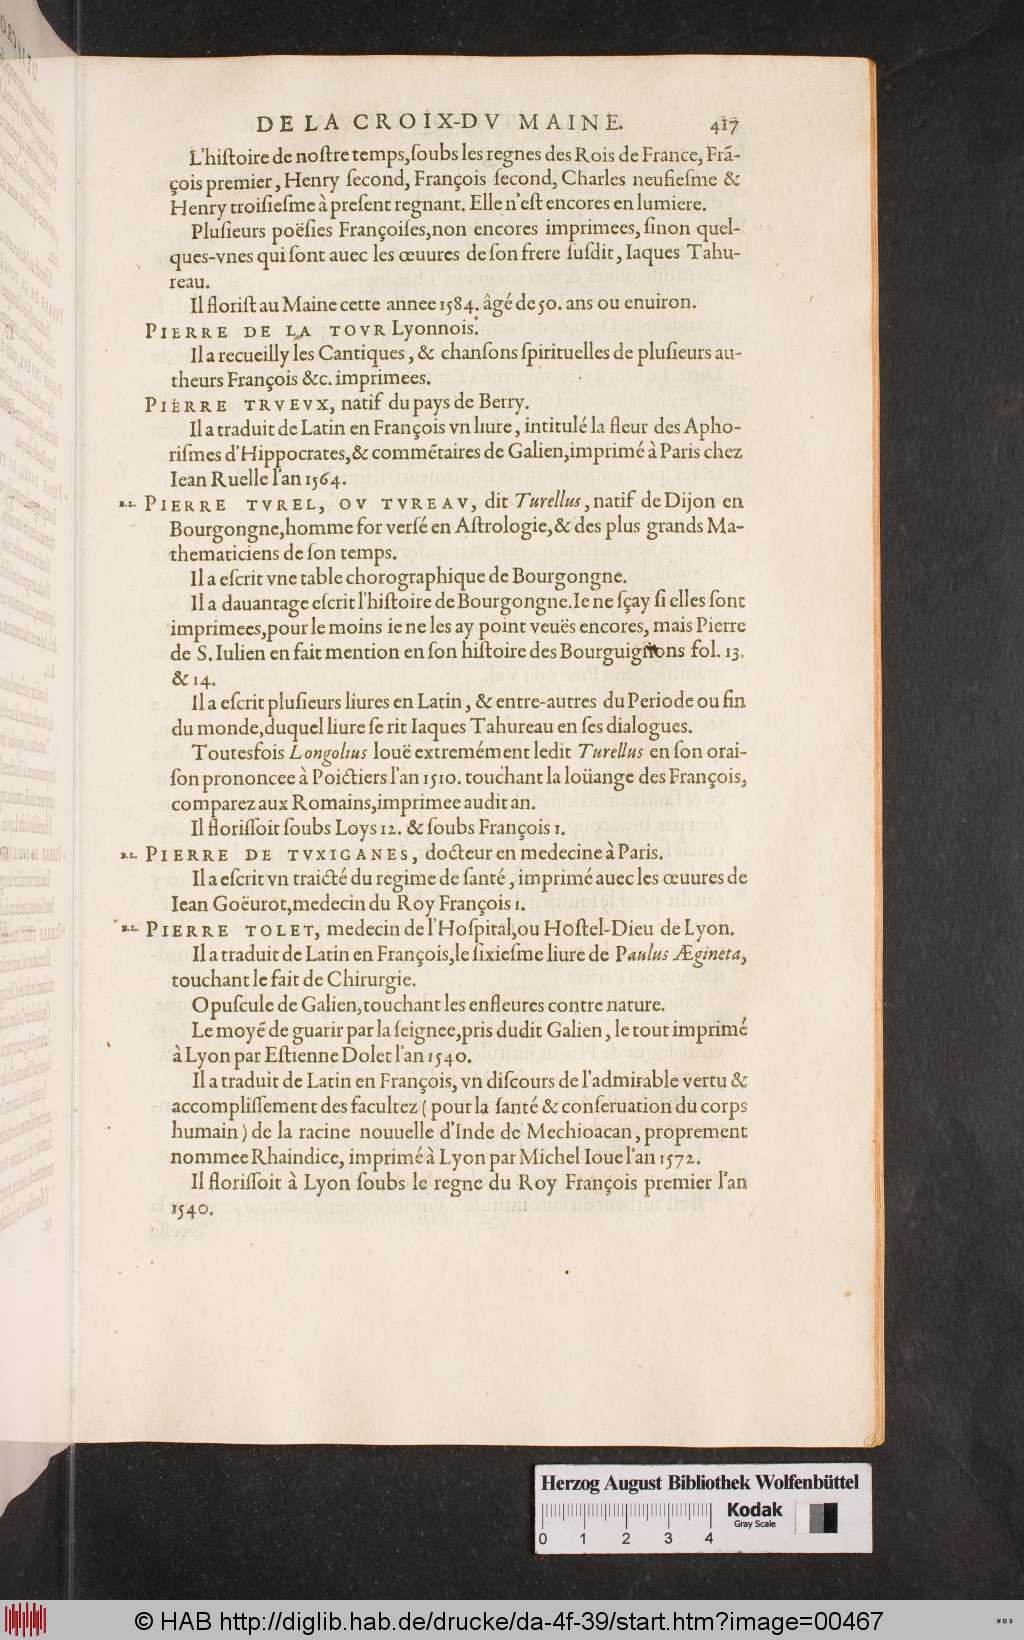 DE LA CROIX-DV MAINE. 417
L'hiſtoire de noſtre temps, ſoubs les regnes des Rois de France, Frã-
çois premier, Henry ſecond, François ſecond, Charles neufieſme &
Henry troiſieſme à preſent regnant. Elle n'eſt encores en lumiere.
Pluſieurs poëſies Françoiſes, non encores imprimees, ſinon quel-
ques-vnes qui ſont auec les œuures de ſon frere ſuſdit, Iaques Tahu-
reau.
Il floriſt au Maine cette annee 1584. âgé de 50. ans ou enuiron.
PIERRE DE LA TOVR Lyonnois.
Il a recueilly les Cantiques, & chanſons ſpirituelles de pluſieurs au-
theurs François &c. imprimees.
PIERRE TRVEVX, natif du pays de Berry.
Il a traduit de Latin en François vn liure, intitulé la fleur des Apho-
riſmes d'Hippocrates, & commẽtaires de Galien, imprimé à Paris chez
Iean Ruelle l'an 1564.
B.L. PIERRE TVREL, OV TVREAV, dit Turellus, natif de Dijon en
Bourgongne, homme for verſé en Aſtrologie, & des plus grands Ma-
thematiciens de ſon temps.
Il a eſcrit vne table chorographique de Bourgongne.
Il a dauantage eſcrit l'hiſtoire de Bourgongne. Ie ne ſçay ſi elles ſont
imprimees, pour le moins ie ne les ay point veuës encores, mais Pierre
de S. Iulien en fait mention en ſon hiſtoire des Bourguignons fol. 13.
& 14.
Il a eſcrit pluſieurs liures en Latin, & entre-autres du Periode ou fin
du monde, duquel liure ſe rit Iaques Tahureau en ſes dialogues.
Toutesfois Longolius louë extremément ledit Turellus en ſon orai-
ſon prononcee à Poictiers l'an 1510. touchant la loüange des François,
comparez aux Romains, imprimee audit an.
Il floriſſoit ſoubs Loys 12. & ſoubs François 1.
B.L. PIERRE DE TVXIGANES, docteur en medecine à Paris.
Il a eſcrit vn traicté du regime de ſanté, imprimé auec les œuures de
Iean Goëurot, medecin du Roy François 1.
B.L. PIERRE TOLET, medecin de l'Hoſpital, ou Hoſtel-Dieu de Lyon.
Il a traduit de Latin en François, le ſixieſme liure de Paulus Ægineta,
touchant le fait de Chirurgie.
Opuſcule de Galien, touchant les enfleures contre nature.
Le moyẽ de guarir par la ſeignee, pris dudit Galien, le tout imprimé
à Lyon par Eſtienne Dolet l'an 1540.
Il a traduit de Latin en François, vn diſcours de l'admirable vertu &
accompliſſement des facultez (pour la ſanté & conſeruation du corps
humain) de la racine nouuelle d'Inde de Mechioacan, proprement
nommee Rhaindice, imprimé à Lyon par Michel Ioue l'an 1572.
Il floriſſoit à Lyon ſoubs le regne du Roy François premier l'an
1540.
Herzog August Bibliothek Wolfenbüttel
Kodak
Gray Scale
0 1 2 3 4
© HAB http://diglib.hab.de/drucke/da-4f-39/start.htm?image=00467